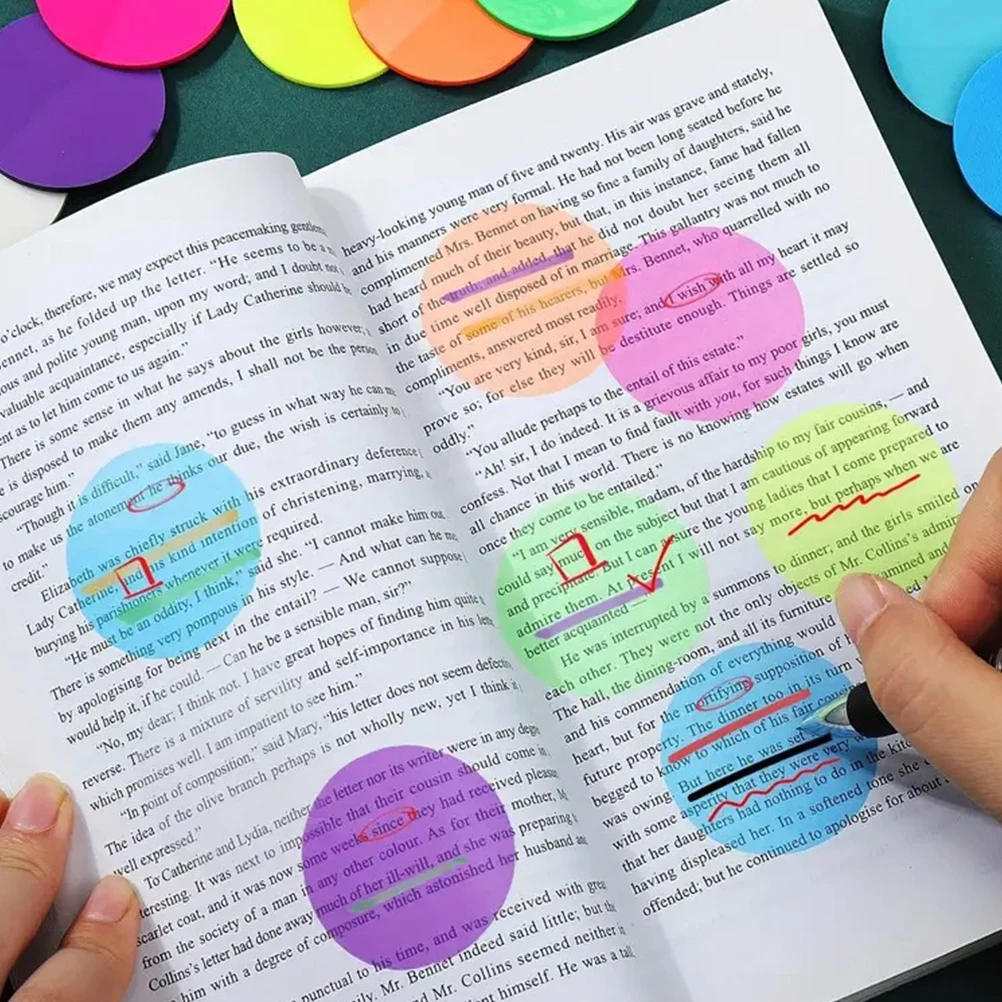 o'clock, therefore, we may expect this peacemaking
ennet, as he folded up the letter. "He seems to be a
ous and polite young man, upon my word; and I doubt not
valuable acquaintance, especially if Lady Catherine should
ent as to let him come to us again."
There is some sense in what he says about the girls however,
e is disposed to make them any amends, I shall not be the person
scourage him."
"Though it is difficult," said Jane, "to guess in what way he can
to make us the atonement he thinks our due, the wish is certainly to
credit."
Elizabeth was chiefly struck with his extraordinary deference
Lady Catherine, and his kind intention of christening, marrying, a
burying his parishioners whenever it were required.
"He must be an oddity, I think," said she. "I cannot make him out.
There is something very pompous in his style. — And what can he
by apologising for being next in the entail? — We cannot suppose
would help it, if he could. — Can he be a sensible man, sir?"
"No, my dear; I think not. I have great hopes of finding him quite
reverse. There is a mixture of servility and self-importance in his
which promises well. I am impatient to see him."
"In point of composition," said Mary, "his letter does not seem
The idea of the olive branch perhaps is not wholly new, yet I think
well expressed."
To Catherine and Lydia, neither the letter nor its writer were in any
teresting. It was next to impossible that their cousin should come in
scarlet coat, and it was now some weeks since they had received
from the society of a man in any other colour. As for their mother, M
Collins's letter had done away much of her ill-will, and she was preparing
him with a degree of composure, which astonished her husband and
punctual to his time, and was received with
ily. Mr. Bennet indeed said little; but the
d Mr. Collins seemed neither
lent himself. He was a tall
heavy-looking young man of five and twenty. His air was grave and stately,
and his manners were very formal. He had not been long seated before he
complimented Mrs. Bennet on having so fine a family of daughters, said he
had heard much of their beauty, but that, in this instance, fame had fallen
short of the truth; and added, that he did not doubt her seeing them all
in due time well disposed of in marriage. This gallantry was not much to
the taste of some of his hearers, but Mrs. Bennet, who quarrelled with no
compliments, answered most readily.
"You are very kind, sir, I am sure; and I wish with all my heart it may
prove so; for else they will be destitute enough. Things are settled so
oddly."
"You allude perhaps to the entail of this estate."
"Ah! sir, I do indeed. It is a grievous affair to my poor girls, you must
confess. Not that I mean to find fault with you, for such things I know are
all chance in this world. There is no knowing how estates will go when
once they come to be entailed."
"I am very sensible, madam, of the hardship to my fair cousins, — and
could say much on the subject but that I am cautious of appearing forward
and precipitate. But I can assure the young ladies that I come prepared to
admire them. At present I will not say more, but perhaps when we are
better acquainted —"
He was interrupted by a summons to dinner, and the girls smiled on
each other. They were not the only objects of Mr. Collins's
The hall, the dining-room, and all its furniture examined and
and his commendation of everything would
heart, but for the mortifying supposition of
future property. The dinner too in its turn
begged to know to which of his fair
was owing. But here he was set
with some asperity that they were very
her daughters had nothing to do in the
having displeased her. In a softened tone she
offended; but he continued to apologise for about